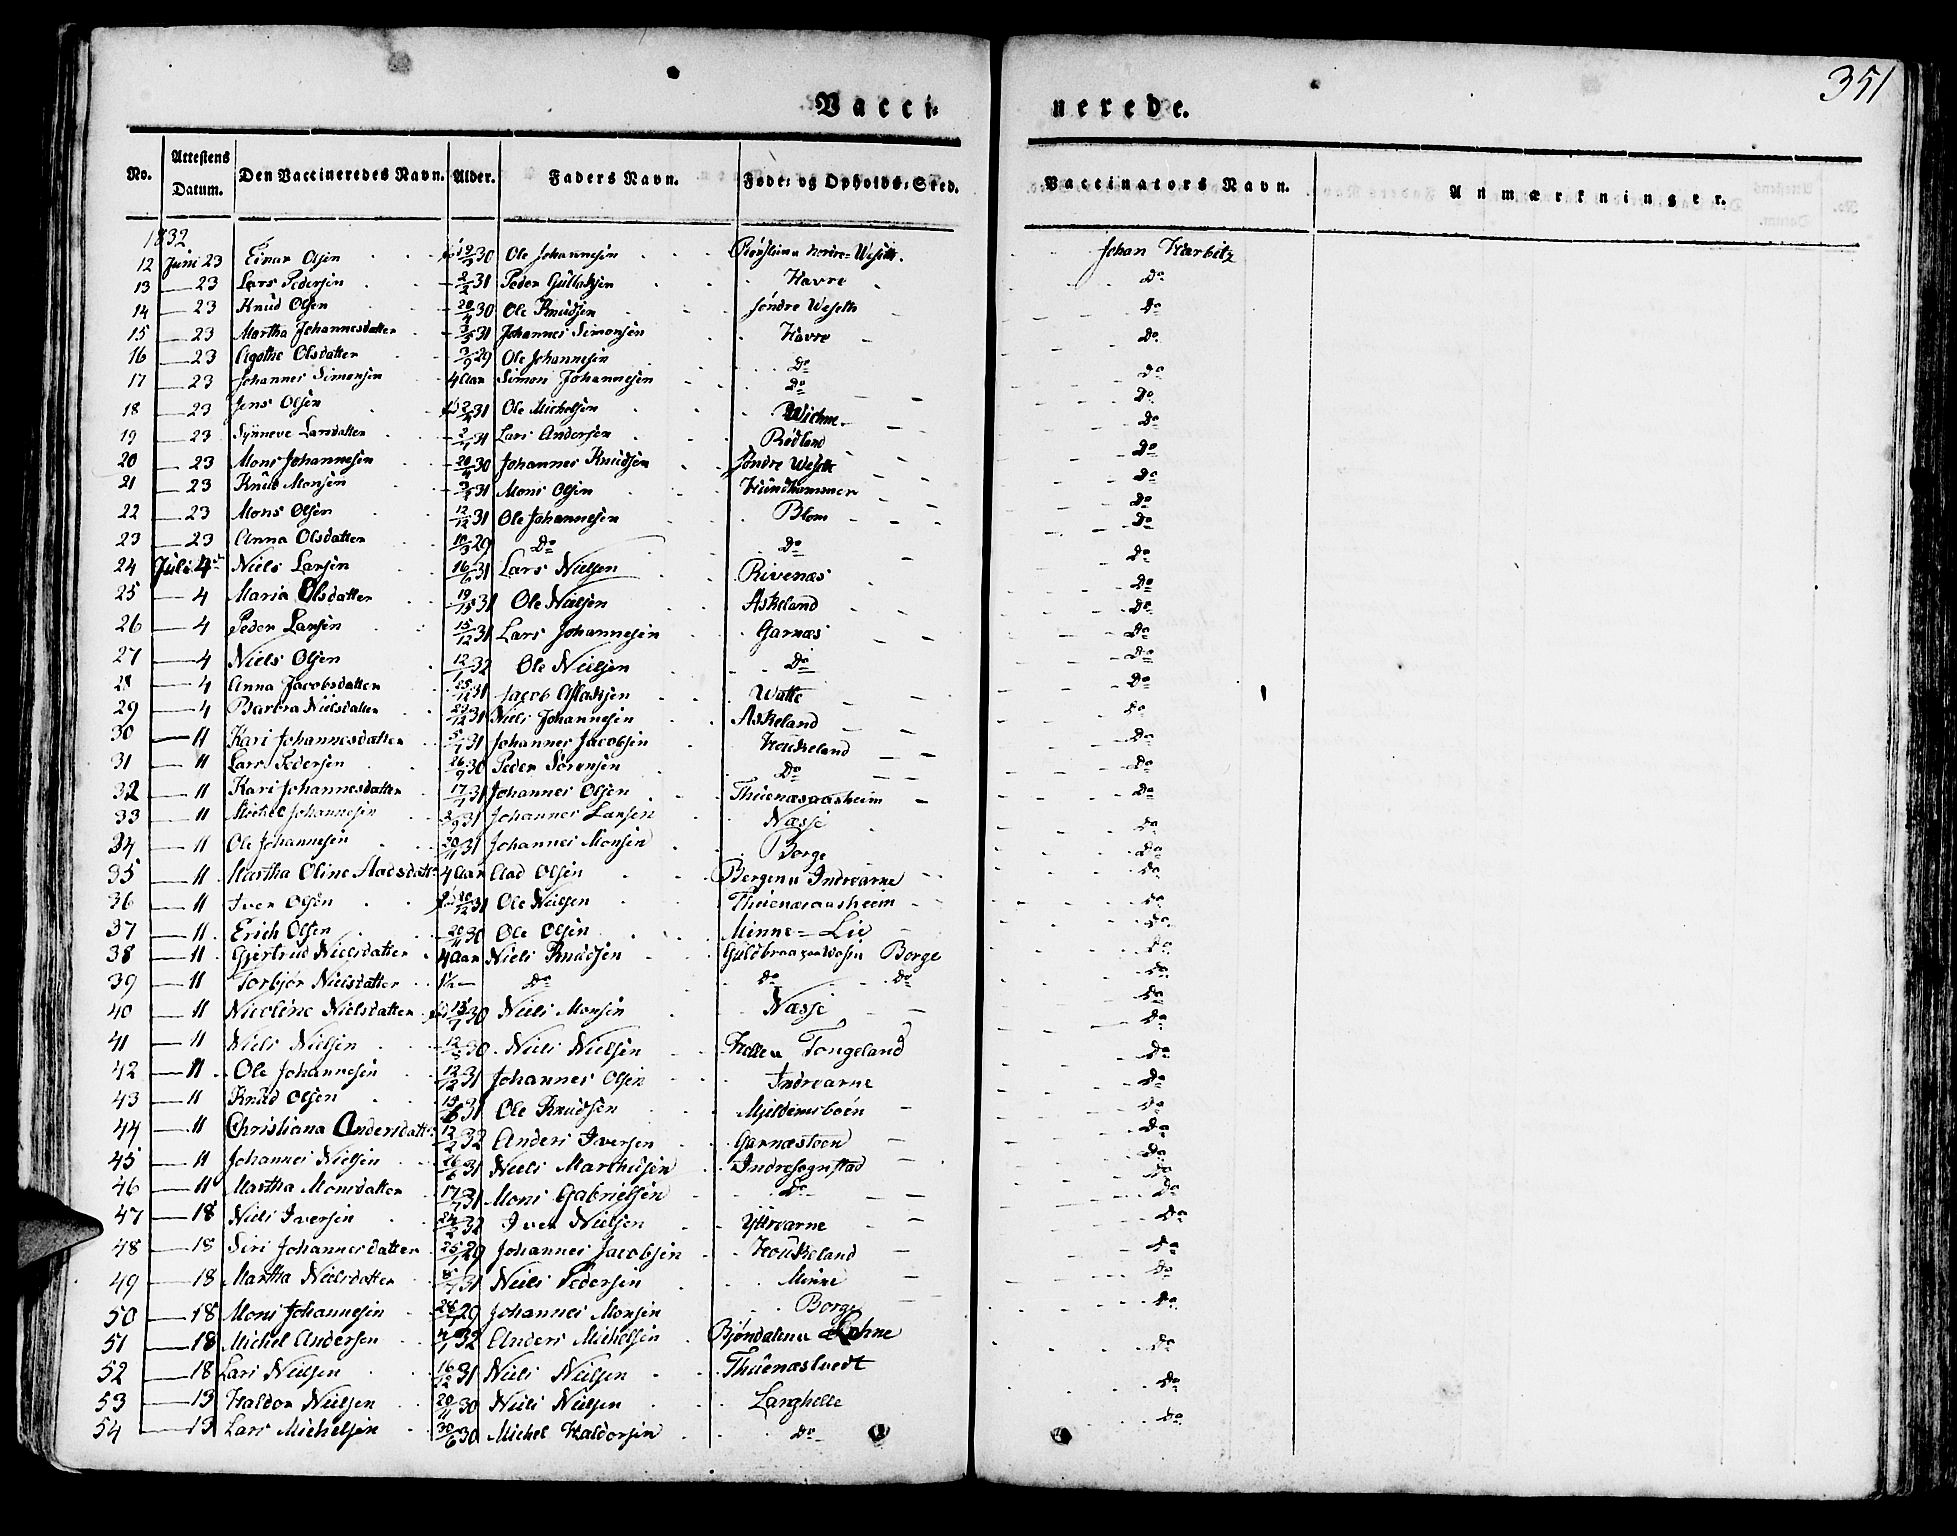 351
Vacci= nerede.
No. Attestens Datum. Den Vaccineredes Navn. Alder. Faders Navn. Føde- og Opholds-Sted. Vaccinators Navn. Anmærkninger.
1832
12 Juni 23 Einar Olsen 30 Ole Johannesen Nordre-Weseth. Johan Harbitz
13 — 23 Lars Pedersen 2/2 31 Peder Gullaksen Havre Do
14 — 23 Knud Olsen 20/4 30 Ole Knudsen Søndre Weseth Do
15 — 23 Martha Johannesdatter 3/5 31 Johannes Simonsen Havre Do
16 — 23 Agothe Olsdatter 3/9 29 Ole Johannesen Do Do
17 — 23 Johannes Simonsen 4 Aar Simon Johannesen Do Do
18 — 23 Jens Olsen 31 Ole Michelsen Wichne Do
19 — 23 Synneve Larsdatter 31 Lars Andersen Rødland Do
20 — 23 Mons Johannesen 20/4 30 Johannes Knudsen Søndre Weseth Do
21 — 23 Knud Monsen 31 Mons Olsen Hundhammer Do
22 — 23 Mons Olsen 12/12 31 Ole Johannesen Blom Do
23 — 23 Anna Olsdatter 10/3 29 Do Do Do
24 Juli 4 Niels Larsen 16/6 31 Lars Nielsen Rivenæs Do
25 — 4 Maria Olsdatter 31 Ole Nielsen Askeland Do
26 — 4 Peder Larsen 15/12 31 Lars Johannesen Garnæs Do
27 — 4 Niels Olsen 12/1 32 Ole Nielsen Do Do
28 — 4 Anna Jacobsdatter 31 Jacob Aslaksen Watte Do
29 — 4 Barbra Nielsdatter 31 Niels Johannesen Askeland Do
30 — 11 Kari Johannesdatter 5/1 31 Johannes Jacobsen Houkeland Do
31 — 11 Lars Pedersen 26/9 30 Peder Sørensen Do Do
32 — 11 Kari Johannesdatter 17/1 31 Johannes Olsen Thuenæsaasheim Do
33 — 11 Michel Johannesen 31 Johannes Larsen Næsse Do
34 — 11 Ole Johannesen 20/11 31 Johannes Monsen Borge Do
35 — 11 Martha Oline Aadsdatt. 4 Aar Aad Olsen Bergen u Indrearne Do
36 — 11 Iver Olsen 31 Ole Nielsen Thuenæsaasheim Do
37 — 11 Erich Olsen 20/11 30 Ole Olsen Minne-Lie Do
38 — 11 Gjertrud Nielsdatter 4 Aar Niels Knudsen Borge Do
39 — 11 Torbjør Nielsdatter 1½ — Do Do Do Do
40 — 11 Nicoline Nielsdatter 30 Niels Monsen Næsse Do
41 — 11 Niels Nielsen 30 Niels Nielsen Helle u Tongeland Do
42 — 11 Ole Johannesen 12/12 31 Johannes Olsen Indrearne Do
43 — 11 Knud Olsen 31 Ole Knudsen Mjeldemsboen Do
44 — 11 Christiana Andersdatt. 32 Anders Iversen Garnæstoen Do
45 — 11 Johannes Nielsen 26/6 31 Niels Marthisen Indresognstad Do
46 — 11 Martha Monsdatter 31 Mons Gabrielsen Do Do
47 — 18 Niels Iversen 32 Iver Nielsen Yttrearne Do
48 — 18 Siri Johannesdatter 29 Johannes Jacobsen Houkeland Do
49 — 18 Martha Nielsdatter 31 Niels Pedersen Minne Do
50 — 18 Mons Johannesen 29 Johannes Monsen Borge Do
51 — 18 Michel Andersen 4/1 32 Anders Michelsen Bjøndalen u Løhne Do
52 — 18 Lars Nielsen 16/12 31 Niels Nielsen Thuenæstvedt Do
53 — 13 Haldor Nielsen 20/11 30 Niels Nielsen Langhelle Do
54 — 13 Lars Michelsen 30/6 30 Michel Haldorsen Do Do